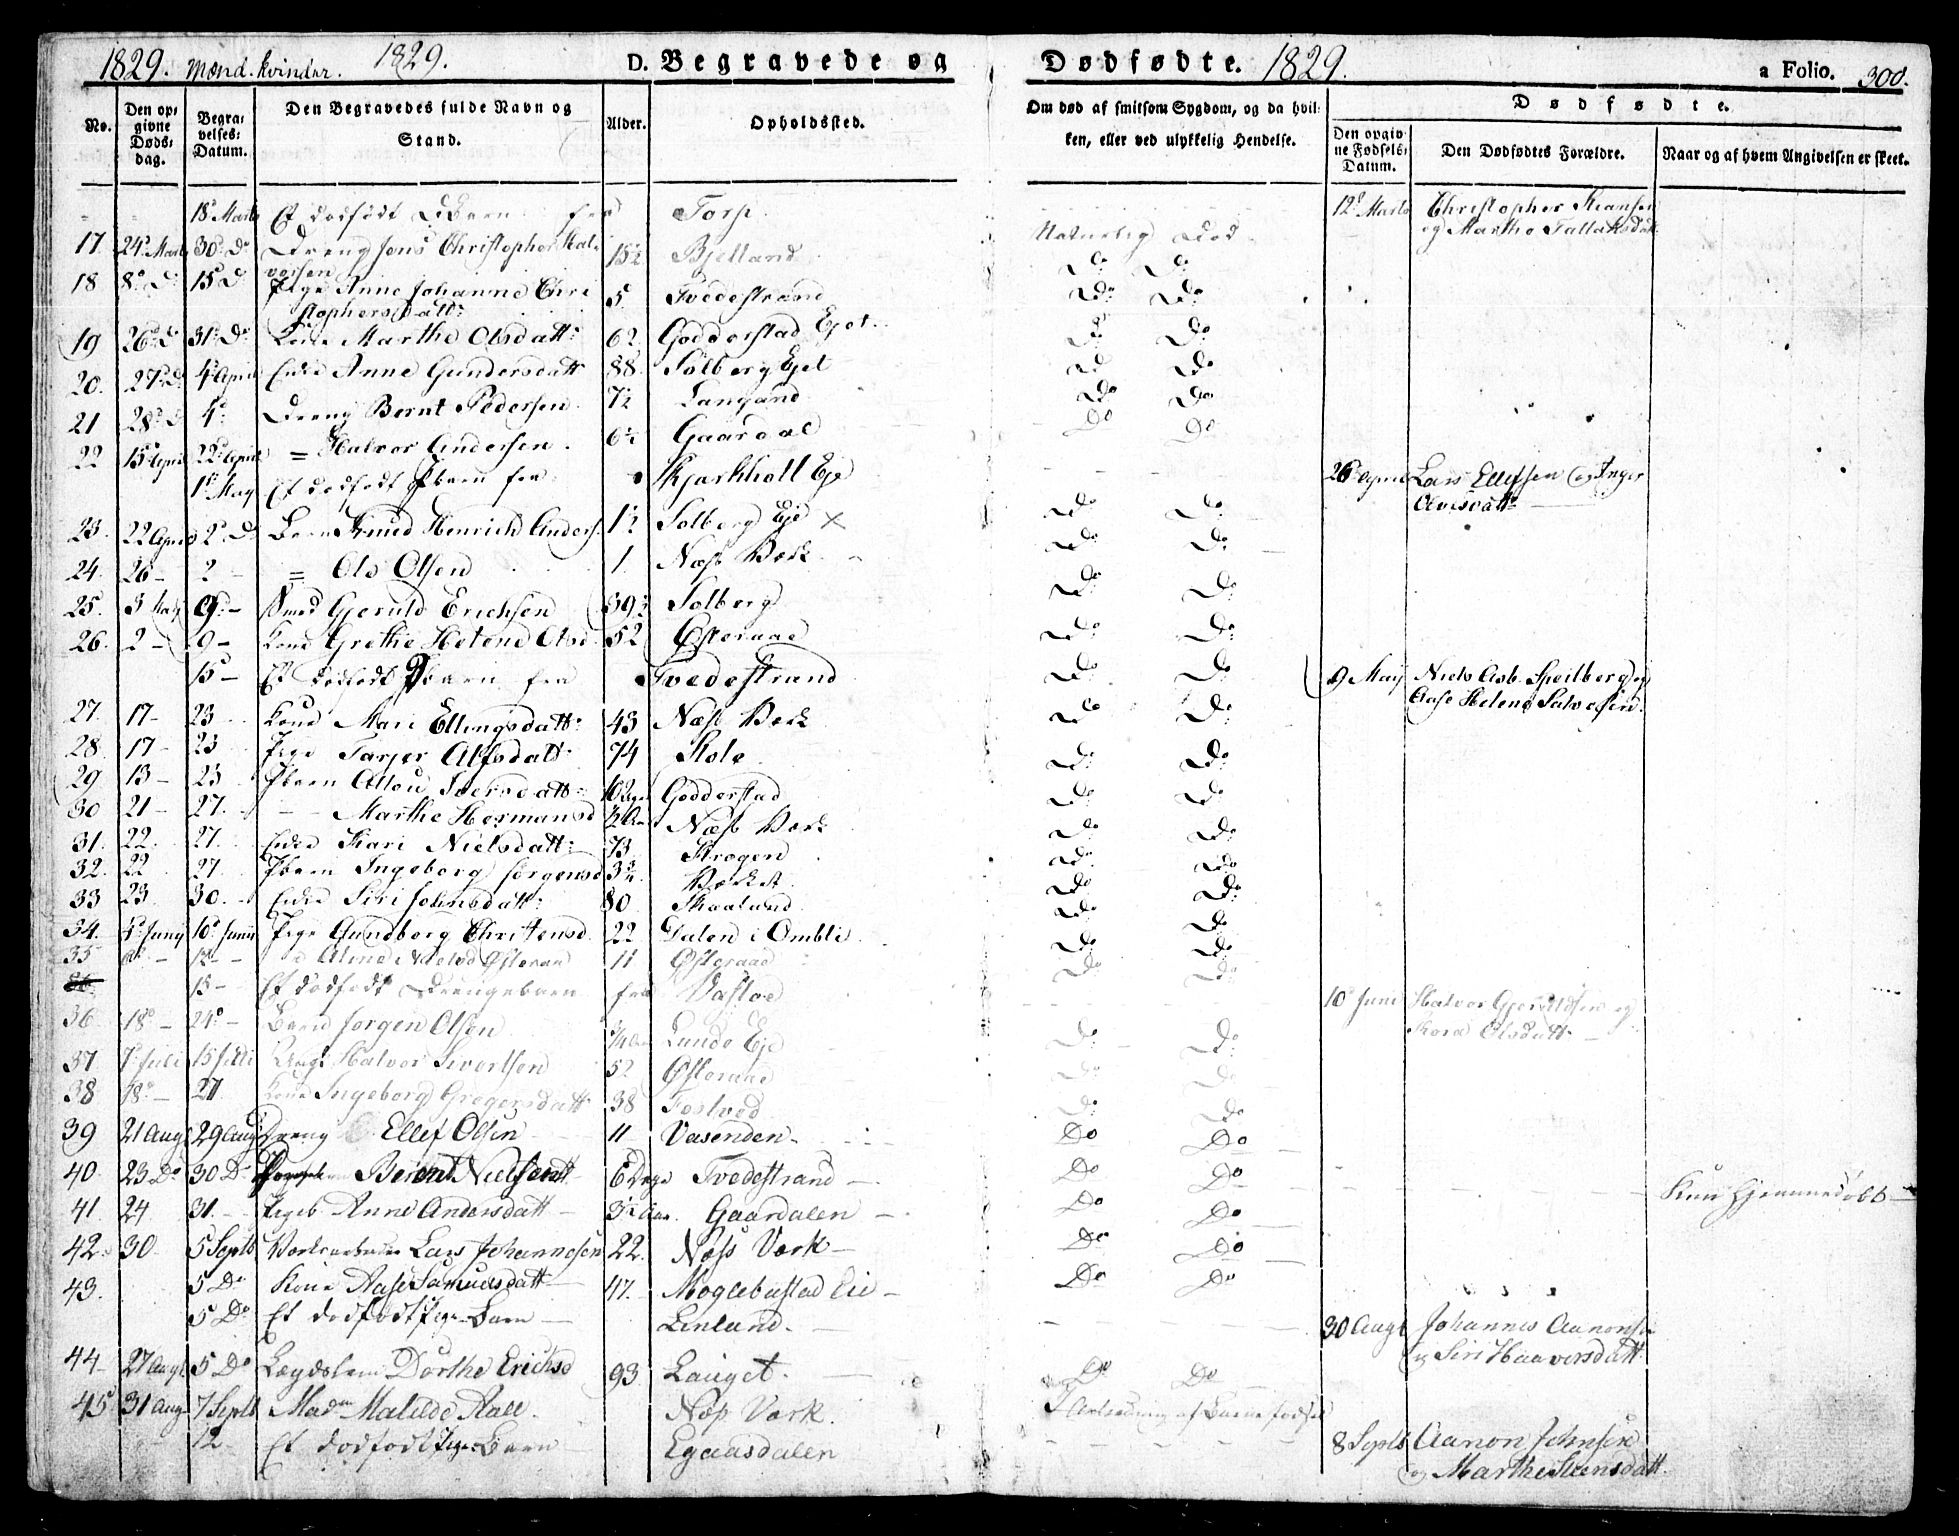 1829. Mænd. kvinder. 1829. D. Begravede og Dødfødte. 1829. a Folio. 300.
No. Den opgivne Dødsdag. Begravelses-Datum. Den Begravedes fulde Navn og Stand. Alder. Opholdssted. Om død af smitsom Sygdom, og da hvilken, eller ved ulykkelig Hendelse. Dødfødte. Den opgivne Fødsels-Datum. Den Dødfødtes Forældre. Naar og af hvem Angivelsen er skeet.
18 Marts Et dødfødt Barn fra Torp 12 Marts Christopher
og Marthe Tallaksdatt
17. 24 Marts 30 Do Dreng Jens Christopher Hal- 15½ Bjelland Naturlig Død
vorsen
18 8 D 15 D Pige Anne Johanne Chri 5 Tvedestrand Do Do
stophersdatt:
19 26 D 31 Do Kone Marthe Olsdatt: 62 Godderstad Ejet Do Do
20. 27 D 4 April Enke Anne Gundersdatt 88. Solberg Ejet Do Do
21 28 D 4 Dreng Bernt Pedersen 7½ Langand Do Do
22 15 April 22 April = Halvor Andersen. 6½ Gaardal Do Do
1 May Et dødfødt Pbarn fra Kjærkholt Eje 26 April Lars Ellefsen og Inger
Olvesdatt
23. 22 April 2 D Barn Knud Henrich Anders. 1½ Solberg Eje × Do Do
24. 26 - 2 - = Ols Olsen 1 Næs Værk Do Do
25. 3 May 9 - Smed Gjeruld Erichsen 39½ Solberg Do Do
26. 2 - 9 - Kone Grethe Helene Olsd. 52 Østeraae Do Do
15 - Et dødfødt Pbarn fra Tvedestrand Do Do 9 May Niels Asb. Speilberg og
Aase Helene Salvesen.
27. 17 - 23 Kone Mari Ellingsdatt: 43 Næs Værk Do Do
28. 17 - 23 Pige Tarjer Alfsdatt 74 Stole Do Do
29 13 - 23 Pbarn Allou Iversdatt: Godderstad Do Do
30 21 - 27. - - Marthe Hermansd Næs Værk Do Do
31. 22. 27. Enke Kari Nielsdatt: 73 Krogen Do Do
32. 22 27 Pbarn Ingeborg Jørgensd 3¾ Værket Do Do
33 23 30. Enke Siri Johnsdatt: 80 Skaaland Do Do
34. 5 Juny 10 Juny Pige Gundborg Christensd. 22 Dalen i Omble Do Do
35 8 - 12 - Anne Nielsd Østeraa 11 Østeraae Do Do
36 15 - Et dødfødt Drengebarn fra Vastøe 10 Juni Halvor Gjeruldsen og
Kora Olsdatt -
36 18 - 24 - Barn Jørgen Olsen ¾ Lunde Eje Do Do
37 7 Juli 15 Juli Halvor Sivertsen 52 Østeraae Do Do
38 18 - 21 Kone Ingeborg Gregersdatt 38 Fostved Do Do
39 21 Augt 29 Aug Dreng Ellef Olsen 11 Vasenden. Do Do
40. 23 Do 30 D Berent Nielsen 6 Dage Tvedestrand Do Do Kun hjemmedøbt
41. 24 31. Pigeb Anne Andersdatt 3½ Aar. Gaardalen Do Do
42. 30 5 Septb Værksarbeider Lars Johannesen 22. Næs Værk Do Do
43. 5 Do Kone Aase Samuelsdatt 47. Moglebustad Eie Do Do
5 Do Et dødfødt Pige-Barn Lenland. 30 Augt Johannes Aanonse
og Siri Haaversdatt
44 27 Augt. 5 Do Lægdslem Dorthe Erichsd 93. Lauget. Do Do
45 31 Aug 7 Septb Madm Matilde Aall. Næs Værk. I Anledning af Barnefødsel
12 - Et dødfødt Pige-Barn Egaasdalen 8 Septb Aanon Johnsen
og Marthe Steensdatt.